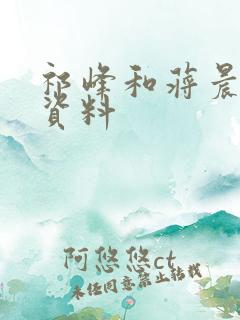 祁峰和蒋晨
資料
阿悠悠ct
未经同意禁止转载